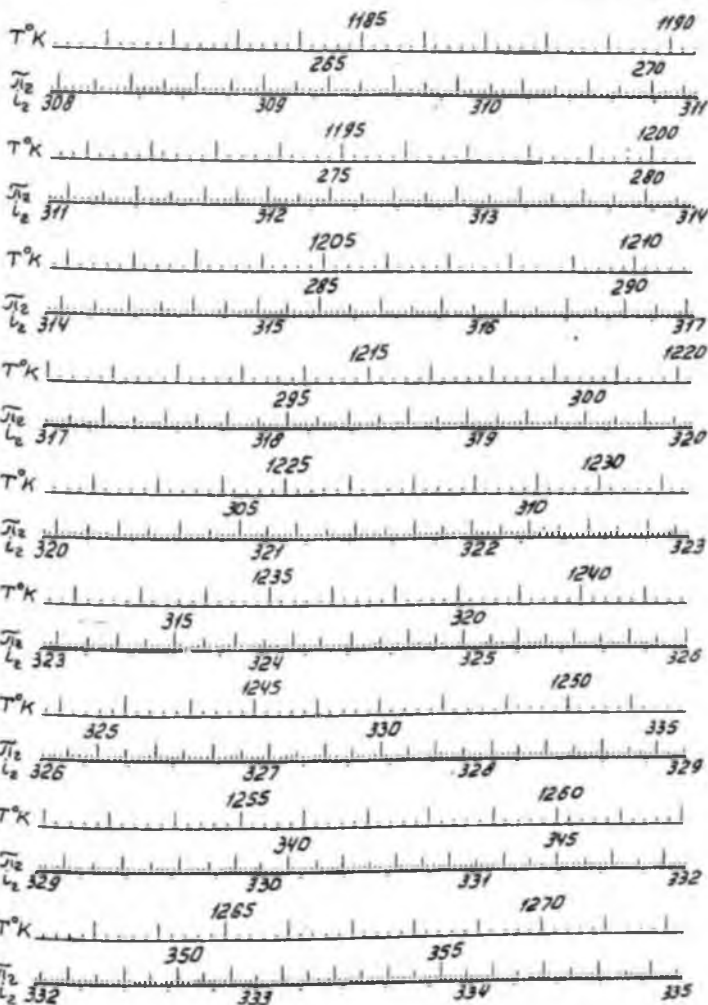 1185 1190
T°K
265 270
π₂
i₂ 308 309 310 311
1195 1200
T°K
275 280
π₂
i₂ 311 312 313 314
1205 1210
T°K
285 290
π₂
i₂ 314 315 316 317
1215 1220
T°K
295 300
π₂
i₂ 317 318 319 320
1225 1230
T°K
305 310
π₂
i₂ 320 321 322 323
1235 1240
T°K
315 320
π₂
i₂ 323 324 325 326
1245 1250
T°K
325 330 335
π₂
i₂ 326 327 328 329
1255 1260
T°K
340 345
π₂
i₂ 329 330 331 332
1265 1270
T°K
350 355
π₂
i₂ 332 333 334 335